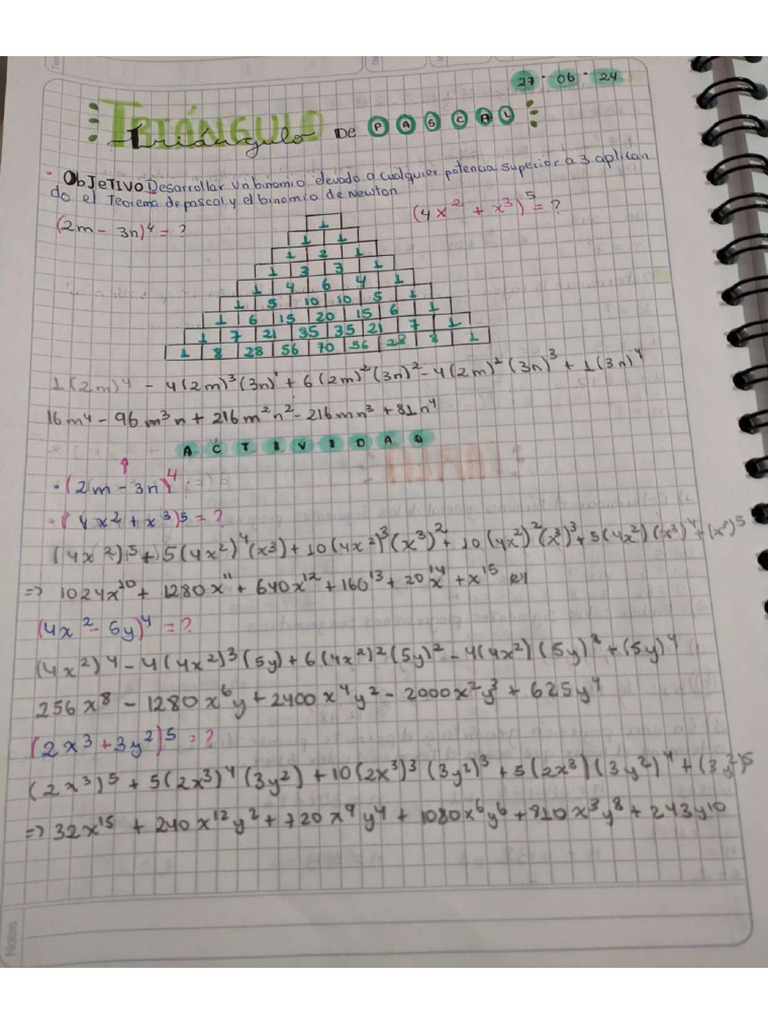 27 · 06 · 24
TRIÁNGULO
Triángulo DE PASCAL
· OBJETIVO Desarrollar un binomio elevado a cualquier potencia superior a 3 aplican
do el Teorema de pascal y el binomio de Newton
(2m - 3n)⁴ = ?
(4x² + x³)⁵ = ?
1
1 1
1 2 1
1 3 3 1
1 4 6 4 1
1 5 10 10 5 1
1 6 15 20 15 6 1
1 7 21 35 35 21 7 1
1 8 28 56 70 56 28 8 1
1(2m)⁴ - 4(2m)³(3n)¹ + 6(2m)²(3n)² - 4(2m)²(3n)³ + 1(3n)⁴
16m⁴ - 96m³n + 216m²n² - 216mn³ + 81n⁴
ACTIVIDAD
· (2m - 3n)⁴
· (4x² + x³)⁵ = ?
(4x²)⁵ + 5(4x²)⁴(x³) + 10(4x²)³(x³)² + 10(4x²)²(x³)³ + 5(4x²)(x³)⁴ + (x³)⁵
=> 1024x¹⁰ + 1280x¹¹ + 640x¹² + 160¹³ + 20x¹⁴ + x¹⁵ R//
(4x² - 5y)⁴ = ?
(4x²)⁴ - 4(4x²)³(5y) + 6(4x²)²(5y)² - 4(4x²)(5y)³ + (5y)⁴
256x⁸ - 1280x⁶y + 2400x⁴y² - 2000x²y³ + 625y⁴
(2x³ + 3y²)⁵ = ?
(2x³)⁵ + 5(2x³)⁴(3y²) + 10(2x³)³(3y²)³ + 5(2x³)(3y²)⁴ + (3y²)⁵
=> 32x¹⁵ + 240x¹²y² + 720x⁹y⁴ + 1080x⁶y⁶ + 810x³y⁸ + 243y¹⁰
Notes